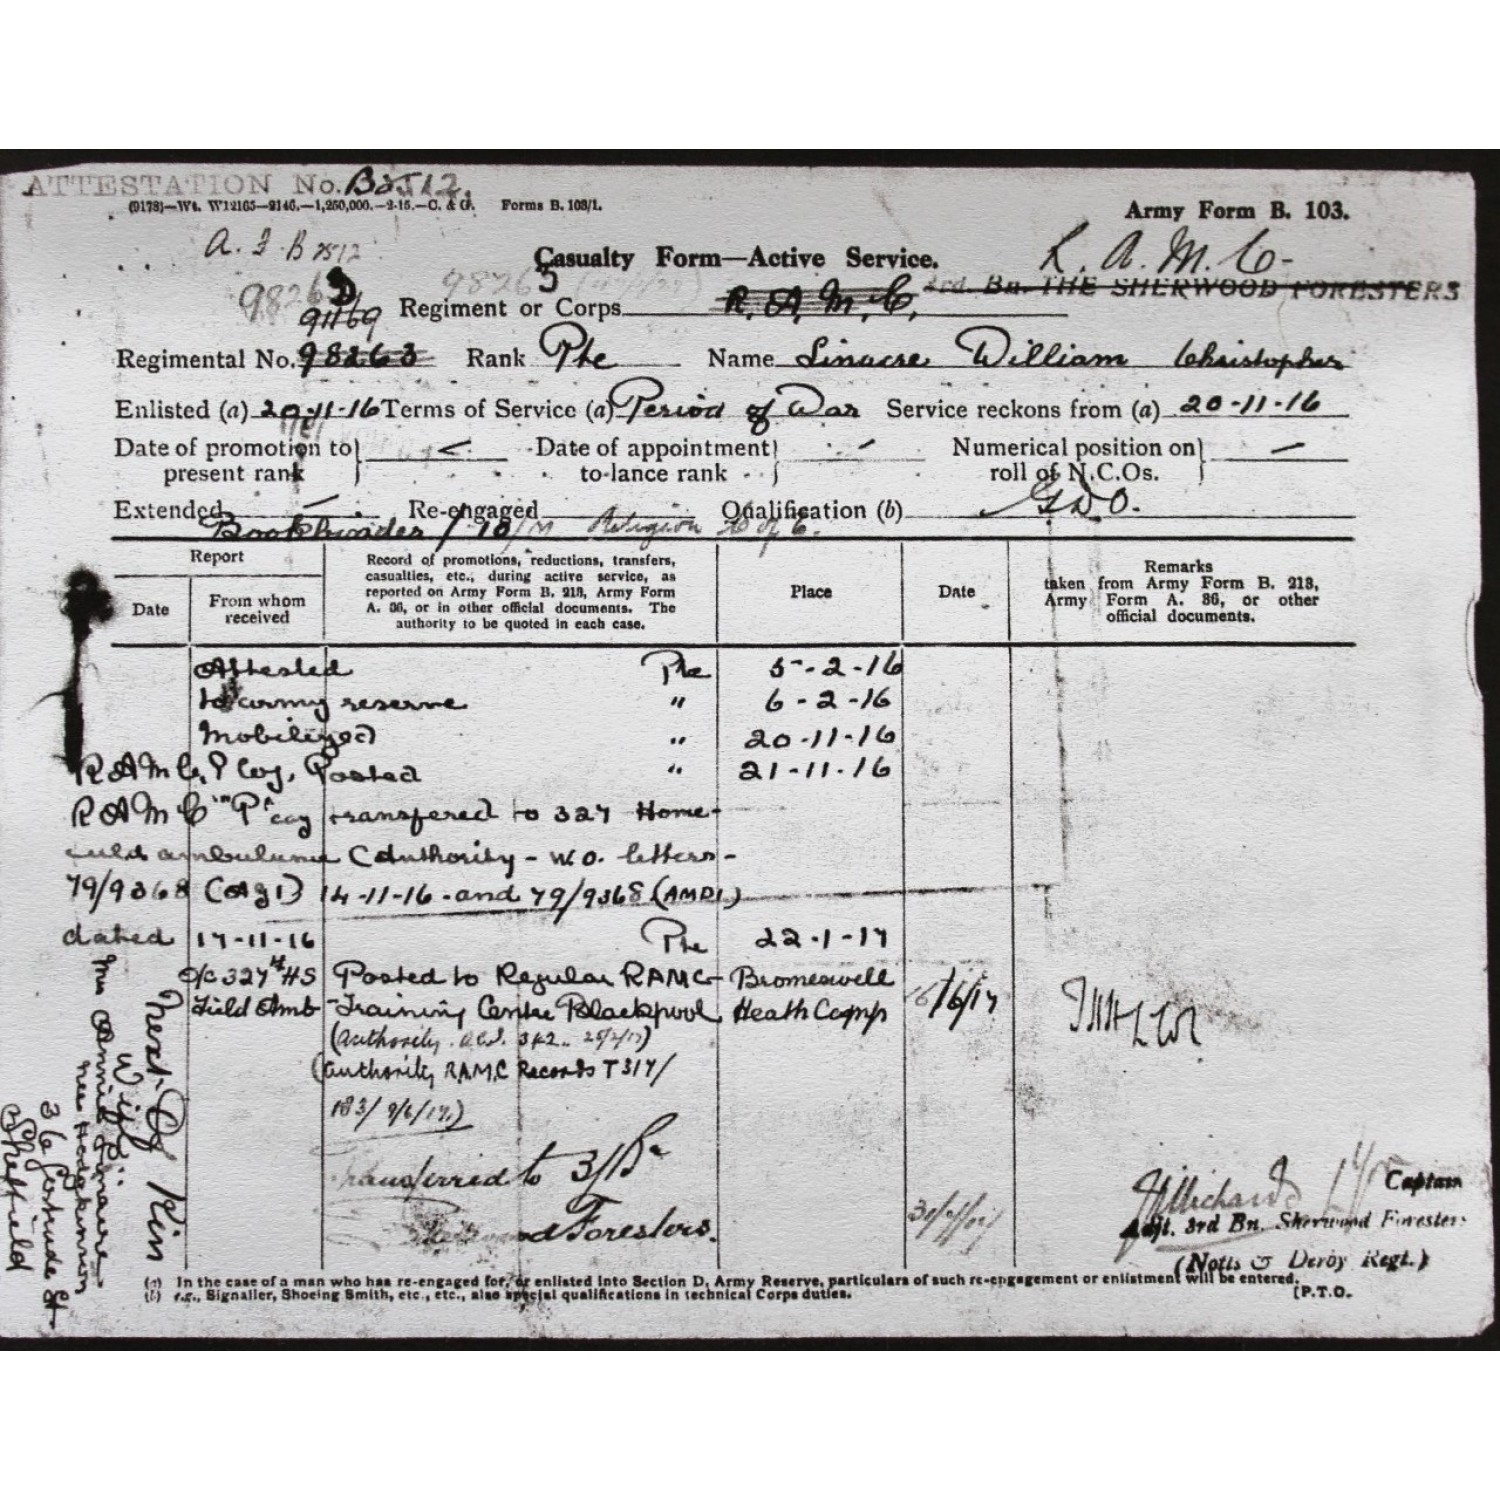 ATTESTATION No. B2512.
(9178)—Wt. W12165—2146.—1,250,000.—2-15.—C. & G. Forms B. 103/1.
Army Form B. 103.
A. F. B 2512
Casualty Form—Active Service.
R. A. M. C.
98263 98263
3rd. Bn. THE SHERWOOD FORESTERS
91169 Regiment or Corps R. A. M. C.
Regimental No. 98263 Rank Pte Name Linacre William Christopher
Enlisted (a) 20-11-16 Terms of Service (a) Period of War Service reckons from (a) 20-11-16
Date of promotion to present rank Date of appointment to lance rank Numerical position on roll of N.C.Os.
Extended Re-engaged Qualification (b) G.D.O.
Bookbinder / 18/M Religion C of E.
Report
Date
From whom received
Record of promotions, reductions, transfers,
casualties, etc., during active service, as
reported on Army Form B. 213, Army Form
A. 36, or in other official documents. The
authority to be quoted in each case.
Place
Date
Remarks
taken from Army Form B. 213,
Army Form A. 36, or other
official documents.
Attested Pte 5-2-16
to army reserve " 6-2-16
Mobilized " 20-11-16
R A M C, P Coy, Posted " 21-11-16
R A M C "P" coy transfered to 327 Home-
field ambulance (authority - W.O. letters -
79/9368 (Ag1) 14-11-16 - and 79/9368 (AMD1)
dated 17-11-16 Pte 22-1-17
O/C 327th HS Posted to Regular RAMC Bromeswell
Field Amb Training Centre Blackpool Heath Camp 16/6/17
(Authority A.C.I. 342 25/2/17)
(Authority R.A.M.C Records T317/
183/9/6/17.)
Transferred to 3/Bn
Sherwood Foresters. 31/7/17
Captain
Adjt. 3rd Bn. Sherwood Foresters
(Notts & Derby Regt.)
Next of Kin
Wife:-
Mrs Annie Linacre
nee Hodgkinson
36 Gertrude St
Sheffield
(a) In the case of a man who has re-engaged for, or enlisted into Section D, Army Reserve, particulars of such re-engagement or enlistment will be entered.
(b) e.g., Signaller, Shoeing Smith, etc., etc., also special qualifications in technical Corps duties. [P.T.O.